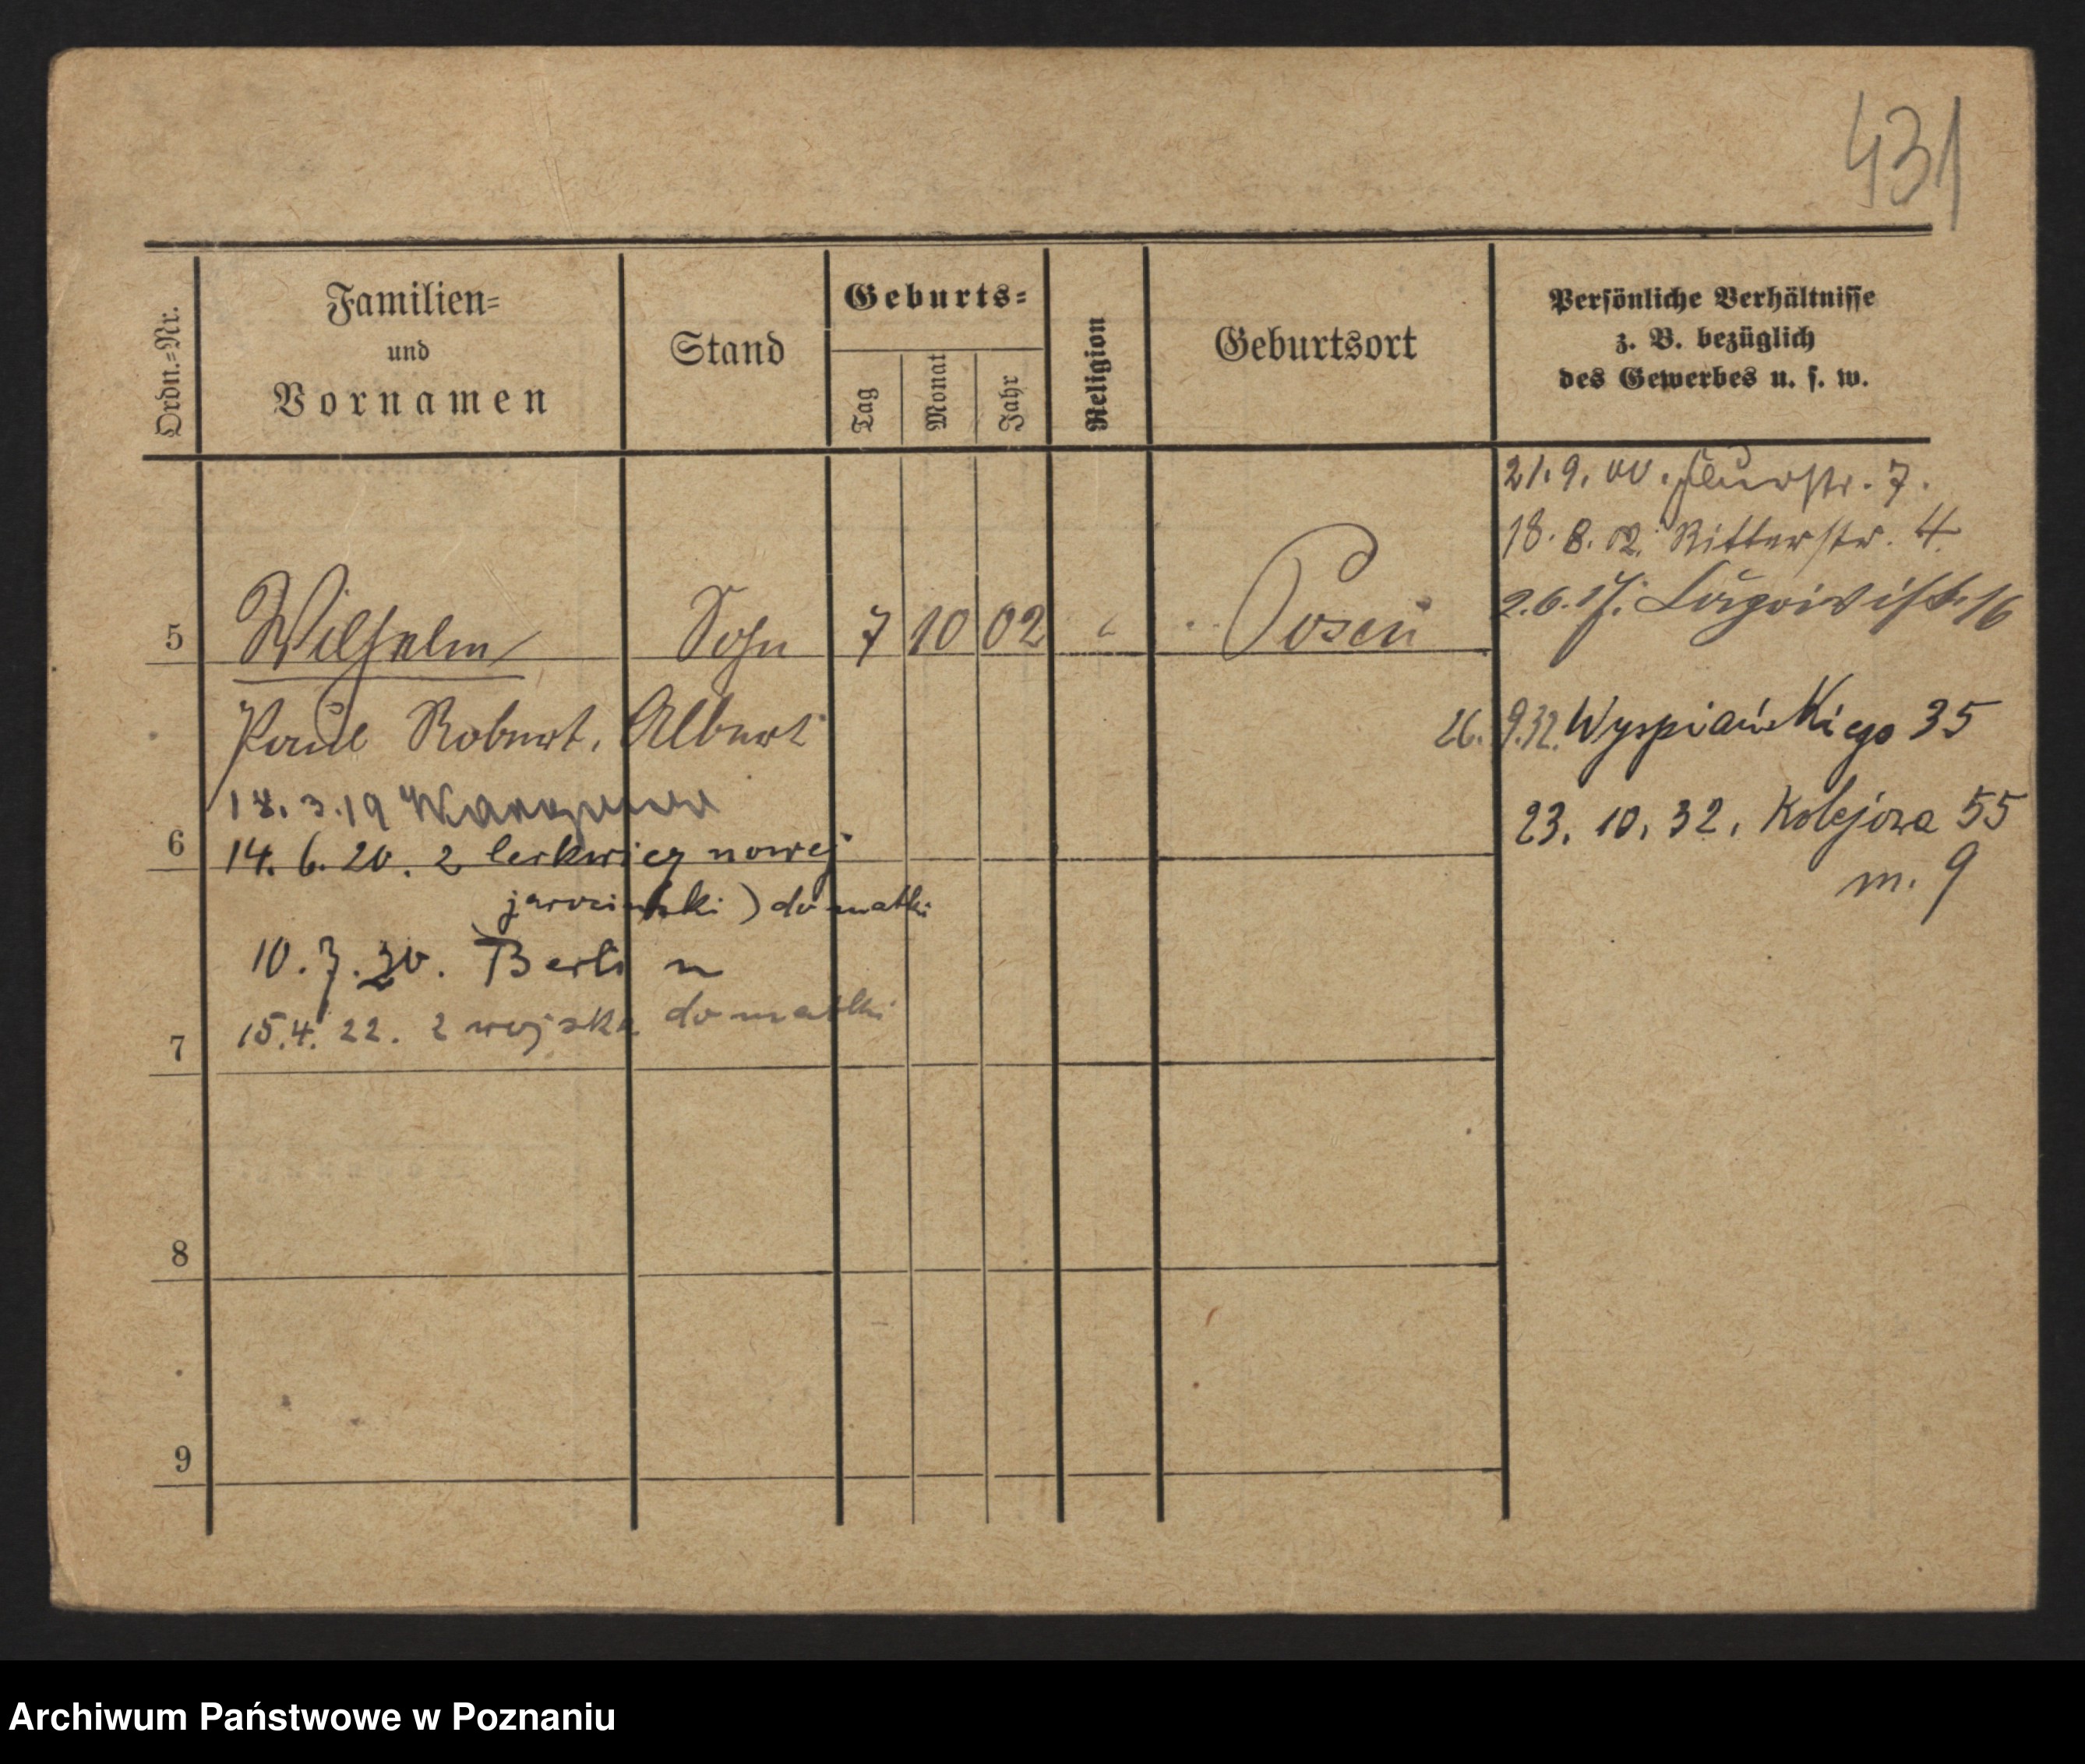 431
Ordn.=Nr.
Familien=
und
Vornamen
Stand
Geburts=
Tag
Monat
Jahr
Religion
Geburtsort
Persönliche Verhältnisse
z. B. bezüglich
des Gewerbes u. s. w.
21. 9. 00. Flurstr. 7.
18. 8. 02. Ritterstr. 4.
5 Wilhelm Sohn 7 10 02 Posen
2. 6. 17. 16
Paul Robert, Albert
26. 9. 32. Wyspiańskiego 35
3. 19
23. 10. 32. Kolejowa 55
m. 9
6
14. 6. 20. z nowej
jarociński) do matki
10. 7. 20. Berlin
7
15. 4. 22. z wojska do matki
8
9
Archiwum Państwowe w Poznaniu